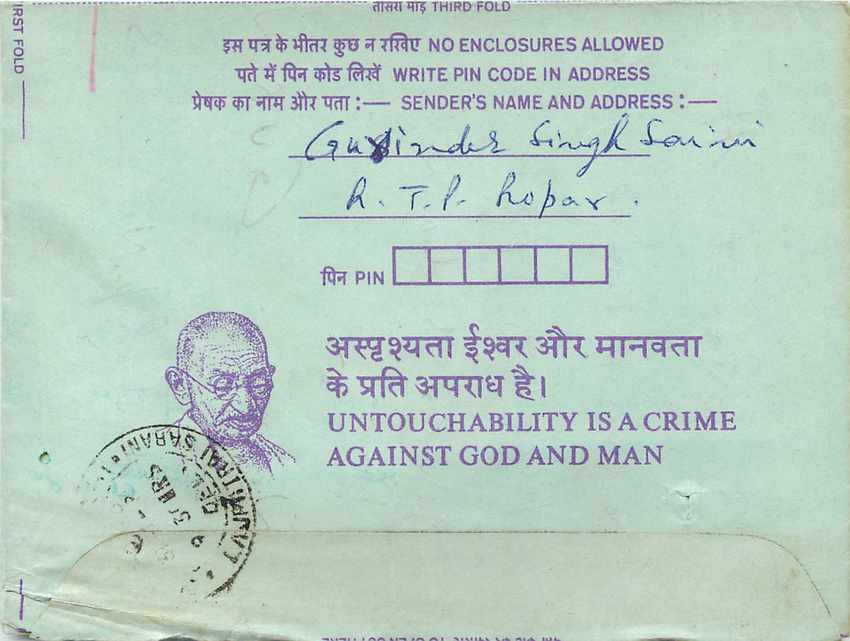 तीसरा मोड़ THIRD FOLD
FIRST FOLD
इस पत्र के भीतर कुछ न रखिए NO ENCLOSURES ALLOWED
पते में पिन कोड लिखें WRITE PIN CODE IN ADDRESS
प्रेषक का नाम और पता :— SENDER'S NAME AND ADDRESS :—
Gurinder Singh Saini
R. T. P. Ropar.
पिन PIN
अस्पृश्यता ईश्वर और मानवता
के प्रति अपराध है।
UNTOUCHABILITY IS A CRIME
AGAINST GOD AND MAN
SARANI
HRS